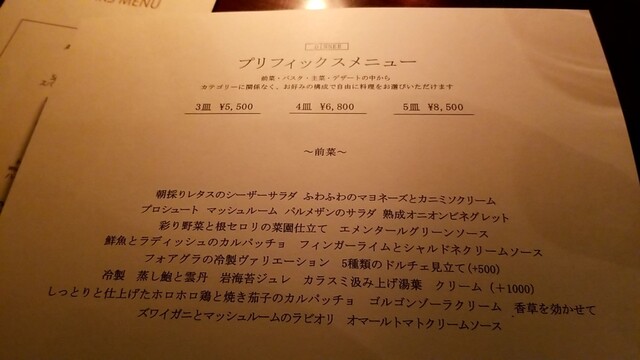 MENU
DINNER
プリフィックスメニュー
前菜・パスタ・主菜・デザートの中から
カテゴリーに関係なく、お好みの構成で自由に料理をお選びいただけます
3皿 ¥5,500 4皿 ¥6,800 5皿 ¥8,500
～前菜～
朝採りレタスのシーザーサラダ ふわふわのマヨネーズとカニミソクリーム
プロシュート マッシュルーム パルメザンのサラダ 熟成オニオンビネグレット
彩り野菜と根セロリの菜園仕立て エメンタールグリーンソース
鮮魚とラディッシュのカルパッチョ フィンガーライムとシャルドネクリームソース
フォアグラの冷製ヴァリエーション 5種類のドルチェ見立て(+500)
冷製 蒸し鮑と雲丹 岩海苔ジュレ カラスミ汲み上げ湯葉 クリーム (＋1000)
しっとりと仕上げたホロホロ鶏と焼き茄子のカルパッチョ ゴルゴンゾーラクリーム 香草を効かせて
ズワイガニとマッシュルームのラビオリ オマールトマトクリームソース